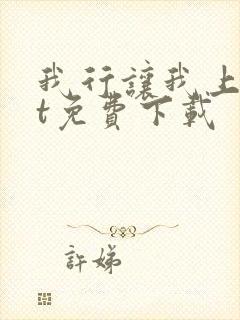 我行讓我上
t免費下載
許娣